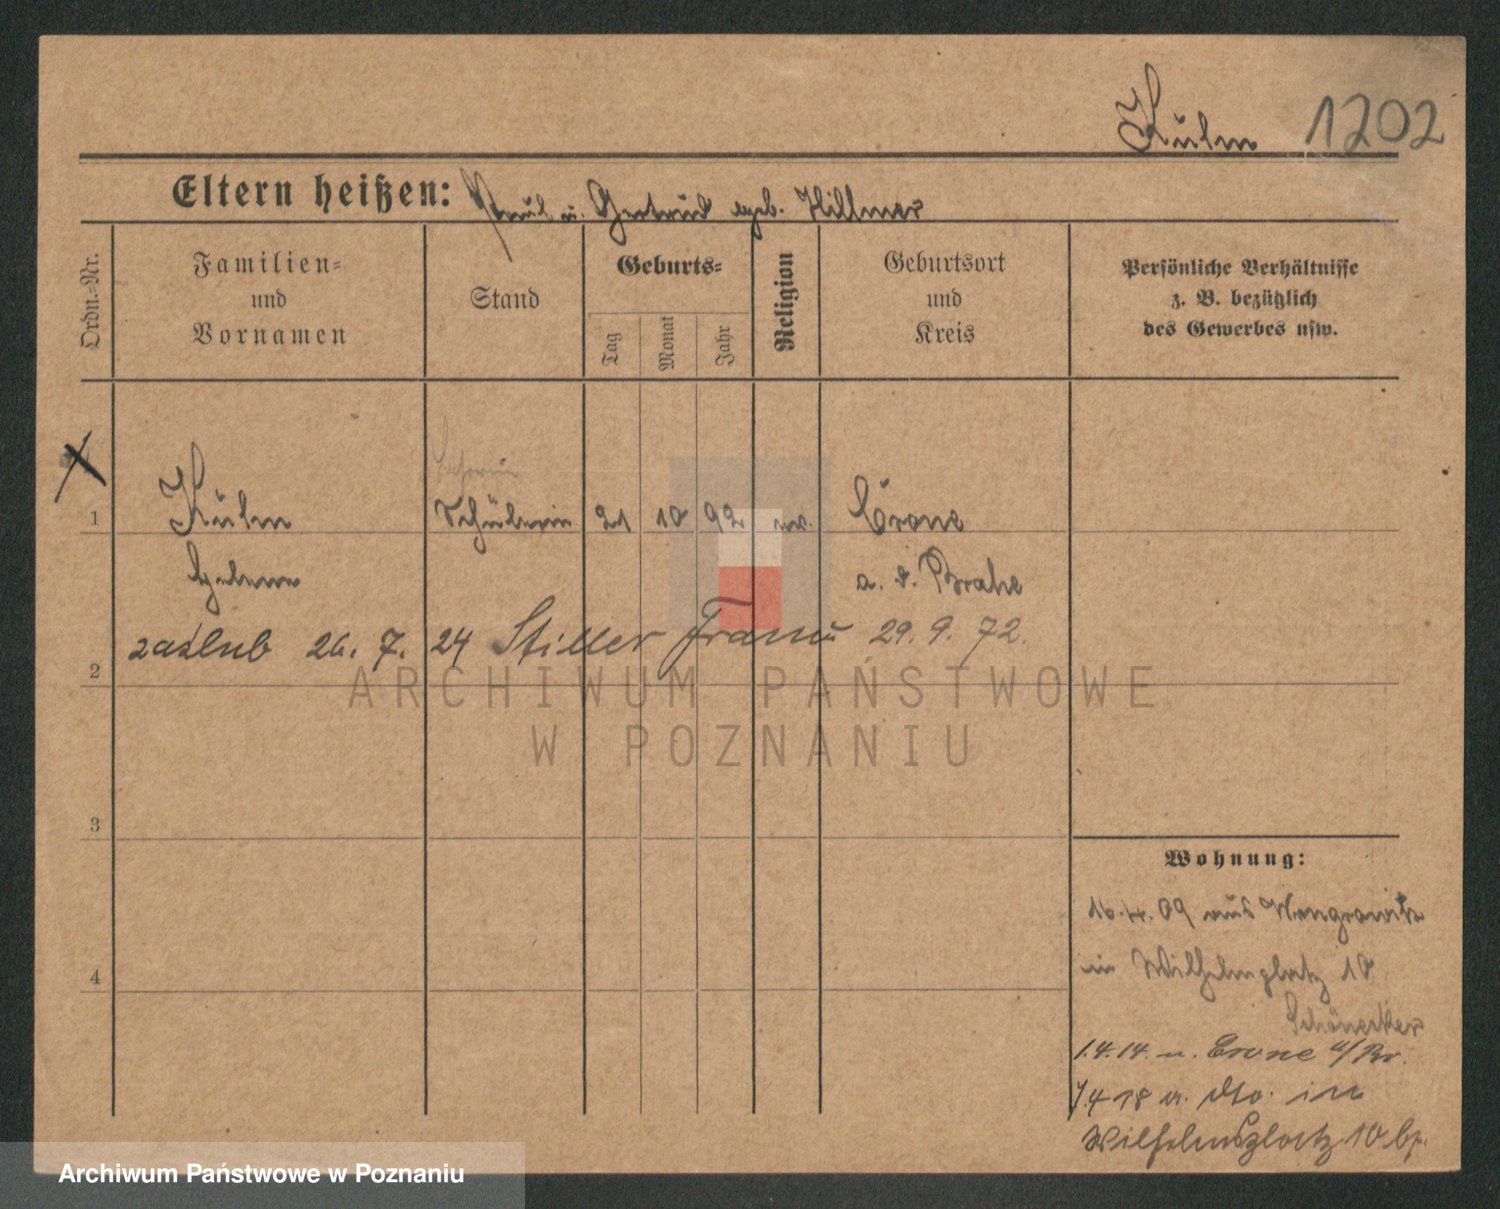 Kulm 1202
Eltern heißen: Paul u. Gertrud geb. Hillmer
Ordn.-Nr.
Familien-
und
Vornamen
Stand
Geburts-
Tag
Monat
Jahr
Religion
Geburtsort
und
Kreis
Persönliche Verhältnisse
z. B. bezüglich
des Gewerbes usw.
1
Schülerin 21 10 92 Crone
a. d. Brahe
zaślub 26. 7. 24 Stiller Franz 29. 9. 72.
2
3
4
Wohnung:
16.4.09 aus Wongrowitz
in Wilhelmplatz 10
1.4.14. n. Crone a/Br.
1.4 18 a. dto. in
Wilhelmsplatz 10
ARCHIWUM PAŃSTWOWE
W POZNANIU
Archiwum Państwowe w Poznaniu